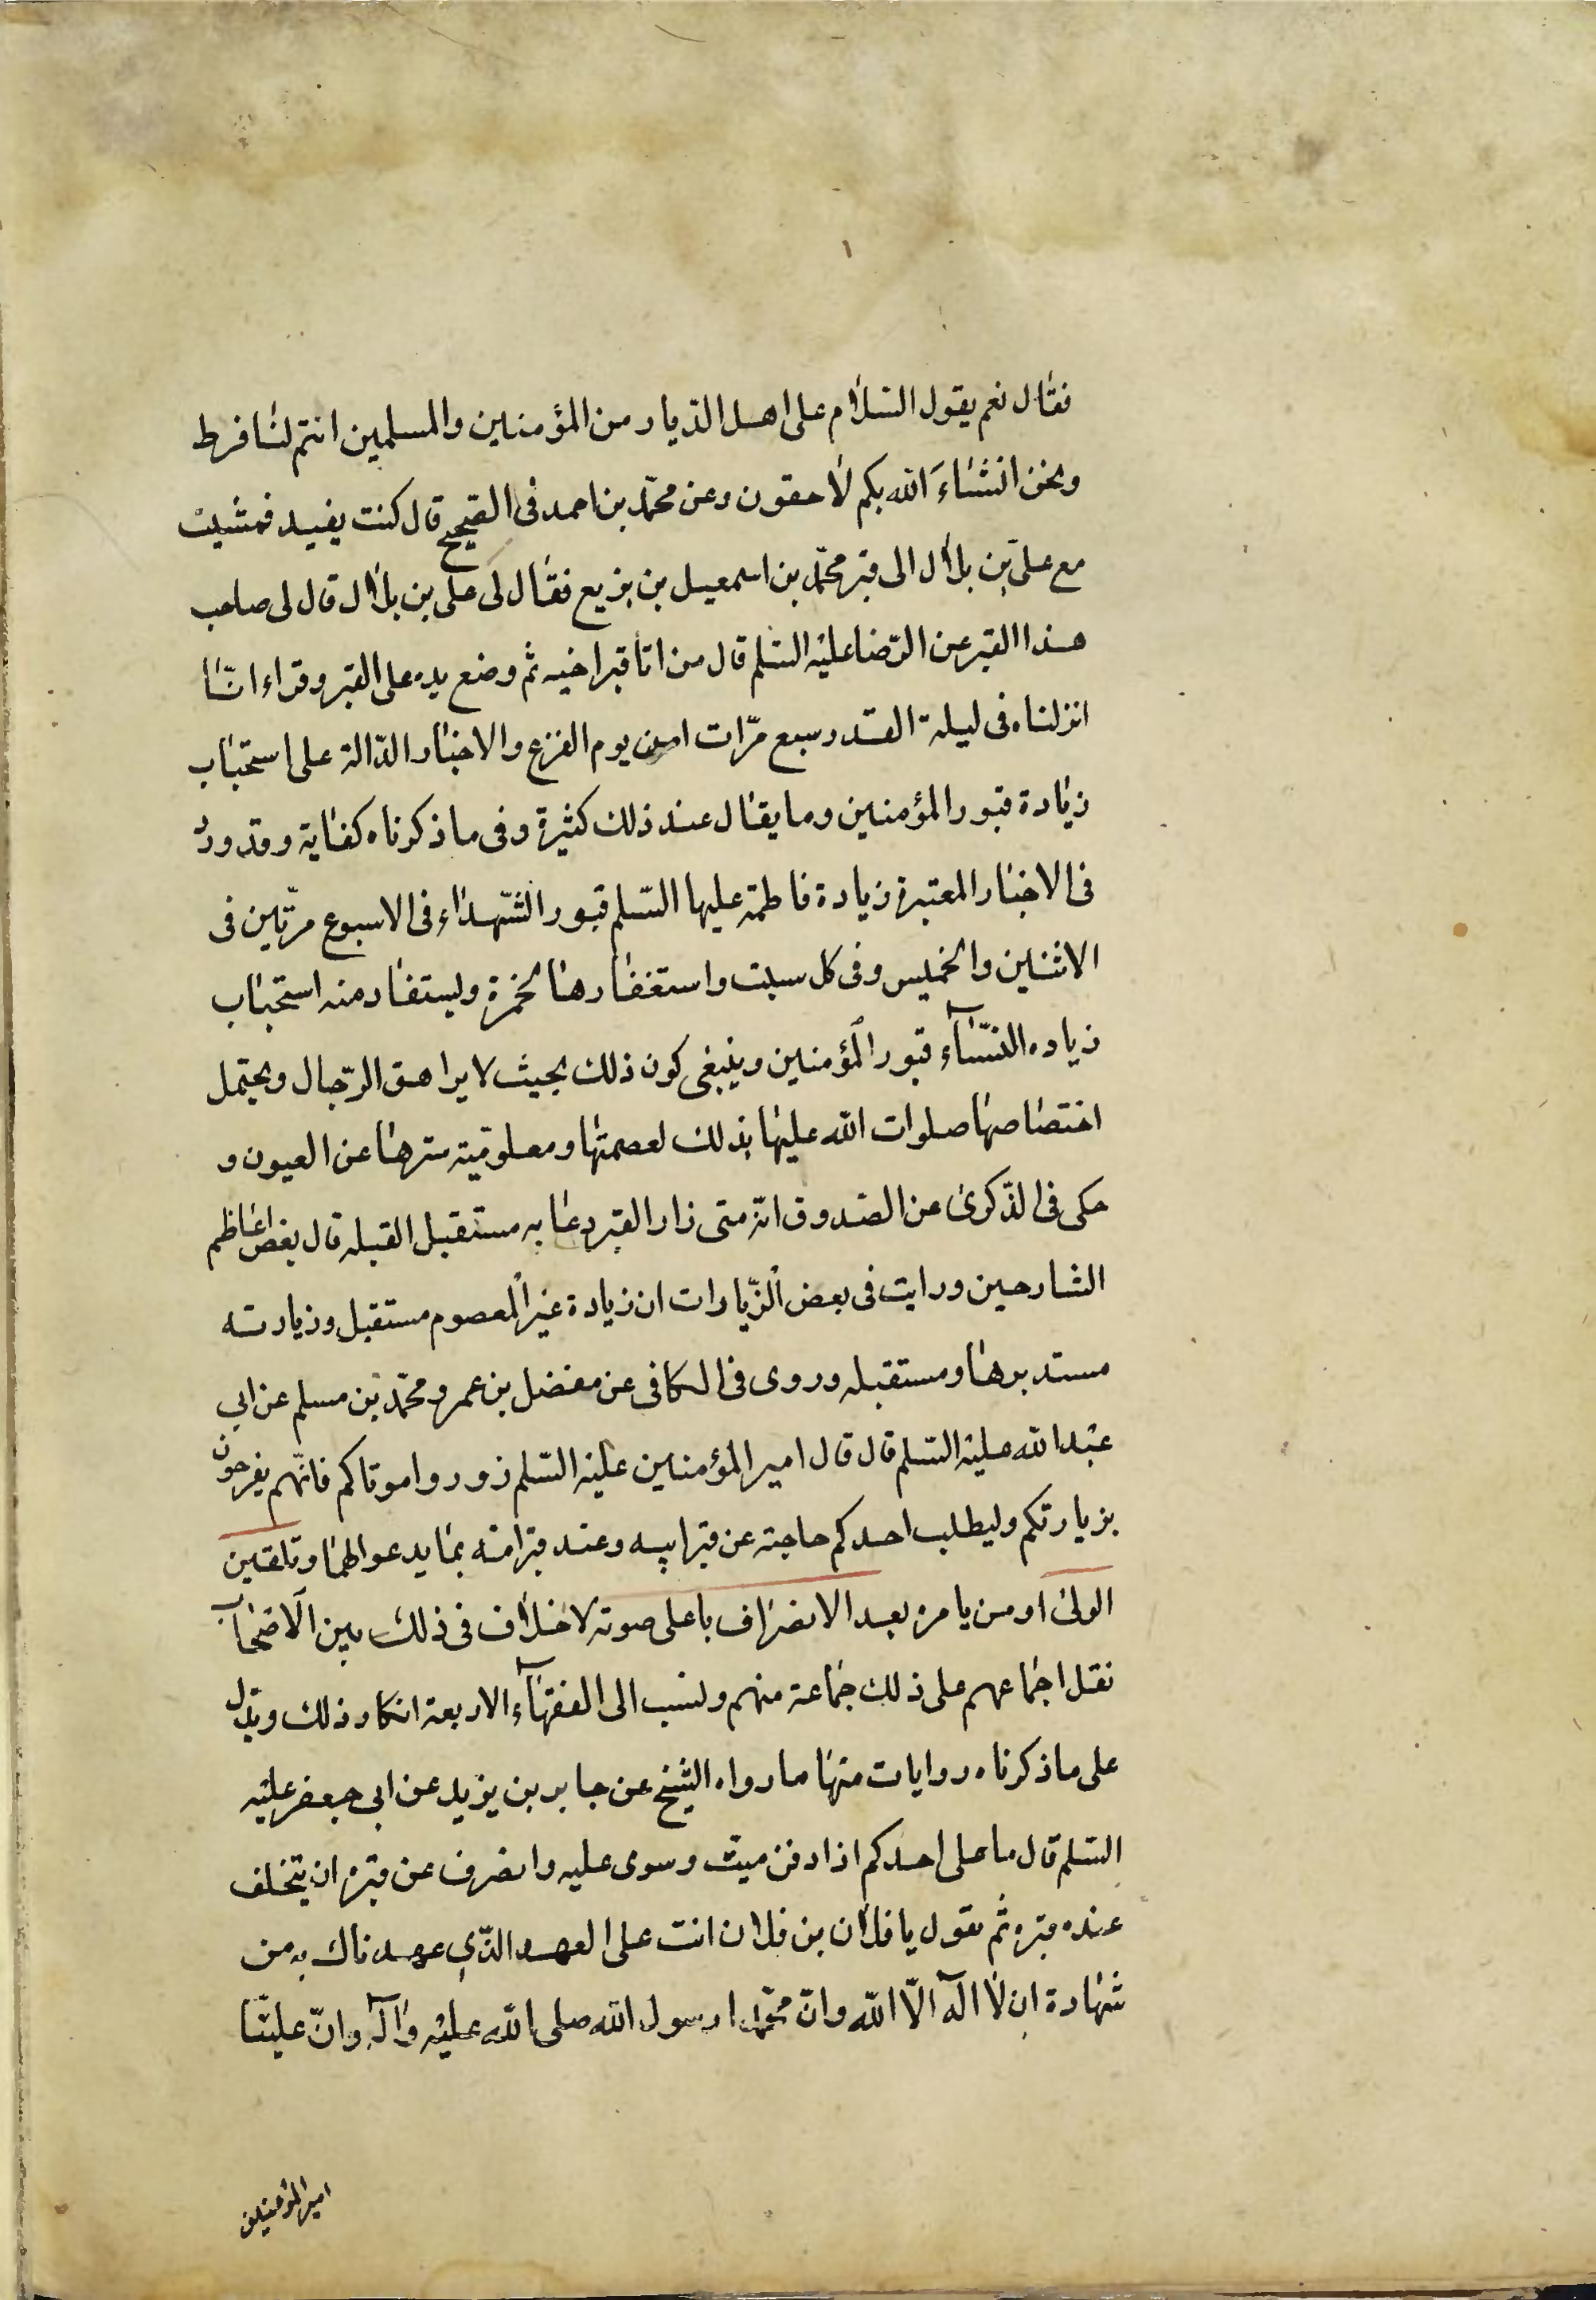 ١
فقال نعم يقول السّلام على اهل الدّيار من المؤمنين والمسلمين انتم لنا فرط
ونحن انشاءَ الله بكم لاحقون وعن محمّد بن احمد فى الصّحيح قال كنت بفيد فمشيت
مع علىّ بن بلال الى قبر محمّد بن اسمعيل بن بزيع فقال لى على بن بلال قال لى صاحب
هذا القبر عن الرّضا عليه السّلم قال من اتا قبر اخيه ثم وضع يده على القبر وقراء انّا
انزلناه فى ليلة القدر سبع مرّات امن يوم الفزع والاخبار الدّالة على استحباب
زيادة قبور المؤمنين وما يقال عند ذلك كثيرة وفى ما ذكرناه كفاية وقد ورد
فى الاخبار المعتبرة زيادة فاطمة عليها السّلم قبور الشّهداء فى الاسبوع مرّتين فى
الاثنين والخميس وفى كل سبت واستغفارها لحمزة ويستفاد منه استحباب
زياده النّسآء قبور المؤمنين وينبغى كون ذلك بحيث لا يراهق الرّجال ويحتمل
اختصاصها صلوات الله عليها بذلك لعصمتها ومعلوميّة سترها عن العيون و
حكى فى الذّكرى عن الصّدوق انّه متى زار القبر دعا به مستقبل القبله قال بعض اعاظم
الشارحين ورايت فى بعض الزّيارات ان زيادة غير المعصوم مستقبل وزيارته
مستدبرها ومستقبله وروى فى الكافى عن مفضل بن عمر ومحمّد بن مسلم عن ابى
عبد الله عليه السّلم قال قال امير المؤمنين عليه السّلم زوروا موتاكم فانّهم يفرحون
بزيارتكم وليطلب احدكم حاجته عن قبر ابيه وعند قبر امّه بما يدعوا لهما وتلقين
الولىّ او من يامره بعد الانصراف باعلى صوته لاخلاف فى ذلك بين الاصحاب
نقل اجماعهم على ذلك جماعة منهم ونسب الى الفقهآء الاربعة انكار ذلك ويدلّ
على ما ذكرناه روايات منها ما رواه الشيخ عن جابر بن يزيد عن ابى جعفر عليه
السّلم قال ما على احدكم اذا دفن ميت وسوى عليه وانصرف عن قبره ان يتخلف
عنده قبره ثم يقول يا فلان بن فلان انت على العهد الذّى عهدناك به من
شهادة ان لا اله الّا الله وانّ محمّدا رسول الله صلى الله عليه وآله وانّ عليّا
امير المؤمنين